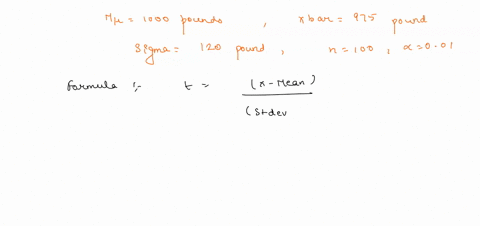 Mμ = 1000 pounds , x bar = 975 pound
Sigma = 120 pound , n = 100 , α = 0.01
Formula :- t = (x - Mean)
(Stdev